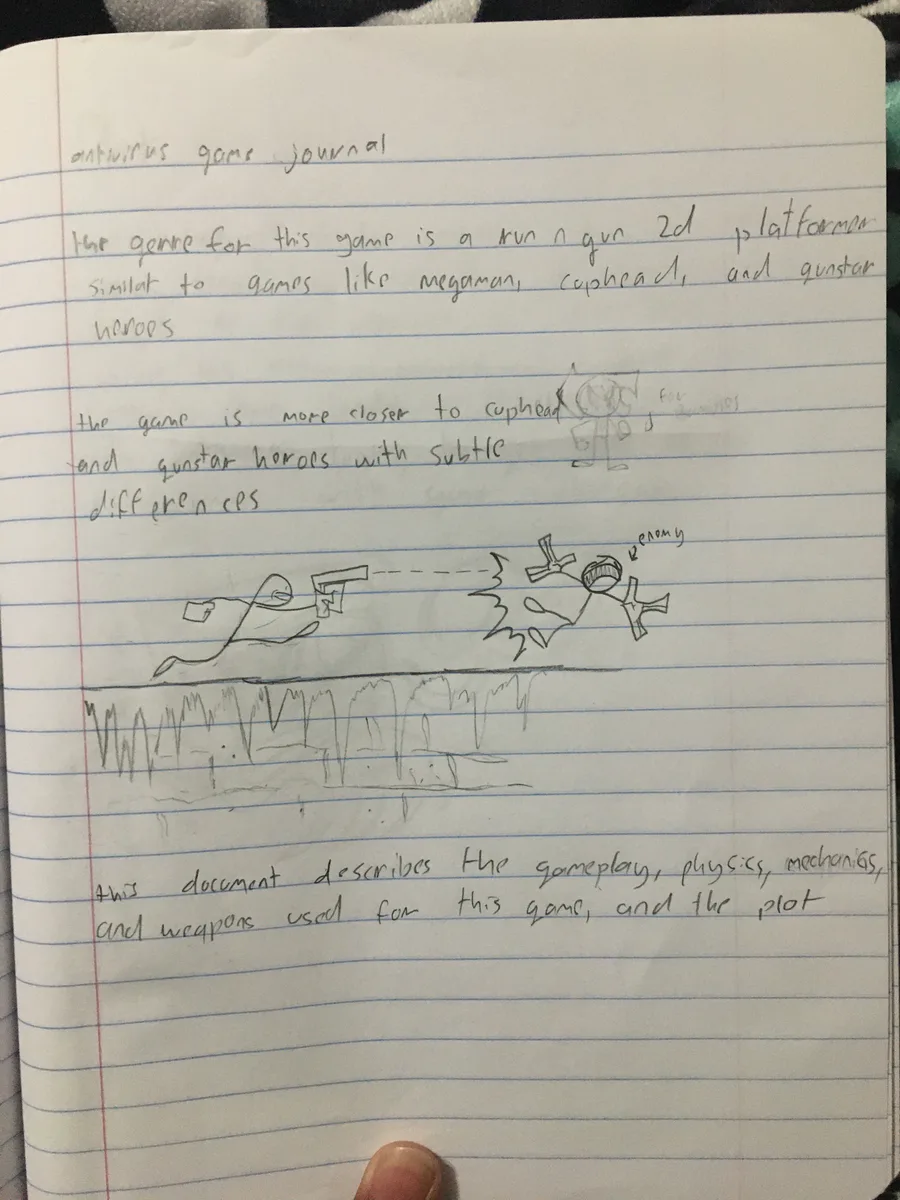 antivirus game journal
the genre for this game is a run n gun 2d platformer
similar to games like megaman, cuphead, and gunstar
heroes
the game is more closer to cuphead
and gunstar heroes with subtle
differences
enemy
this document describes the gameplay, physics, mechanics,
and weapons used for this game, and the plot